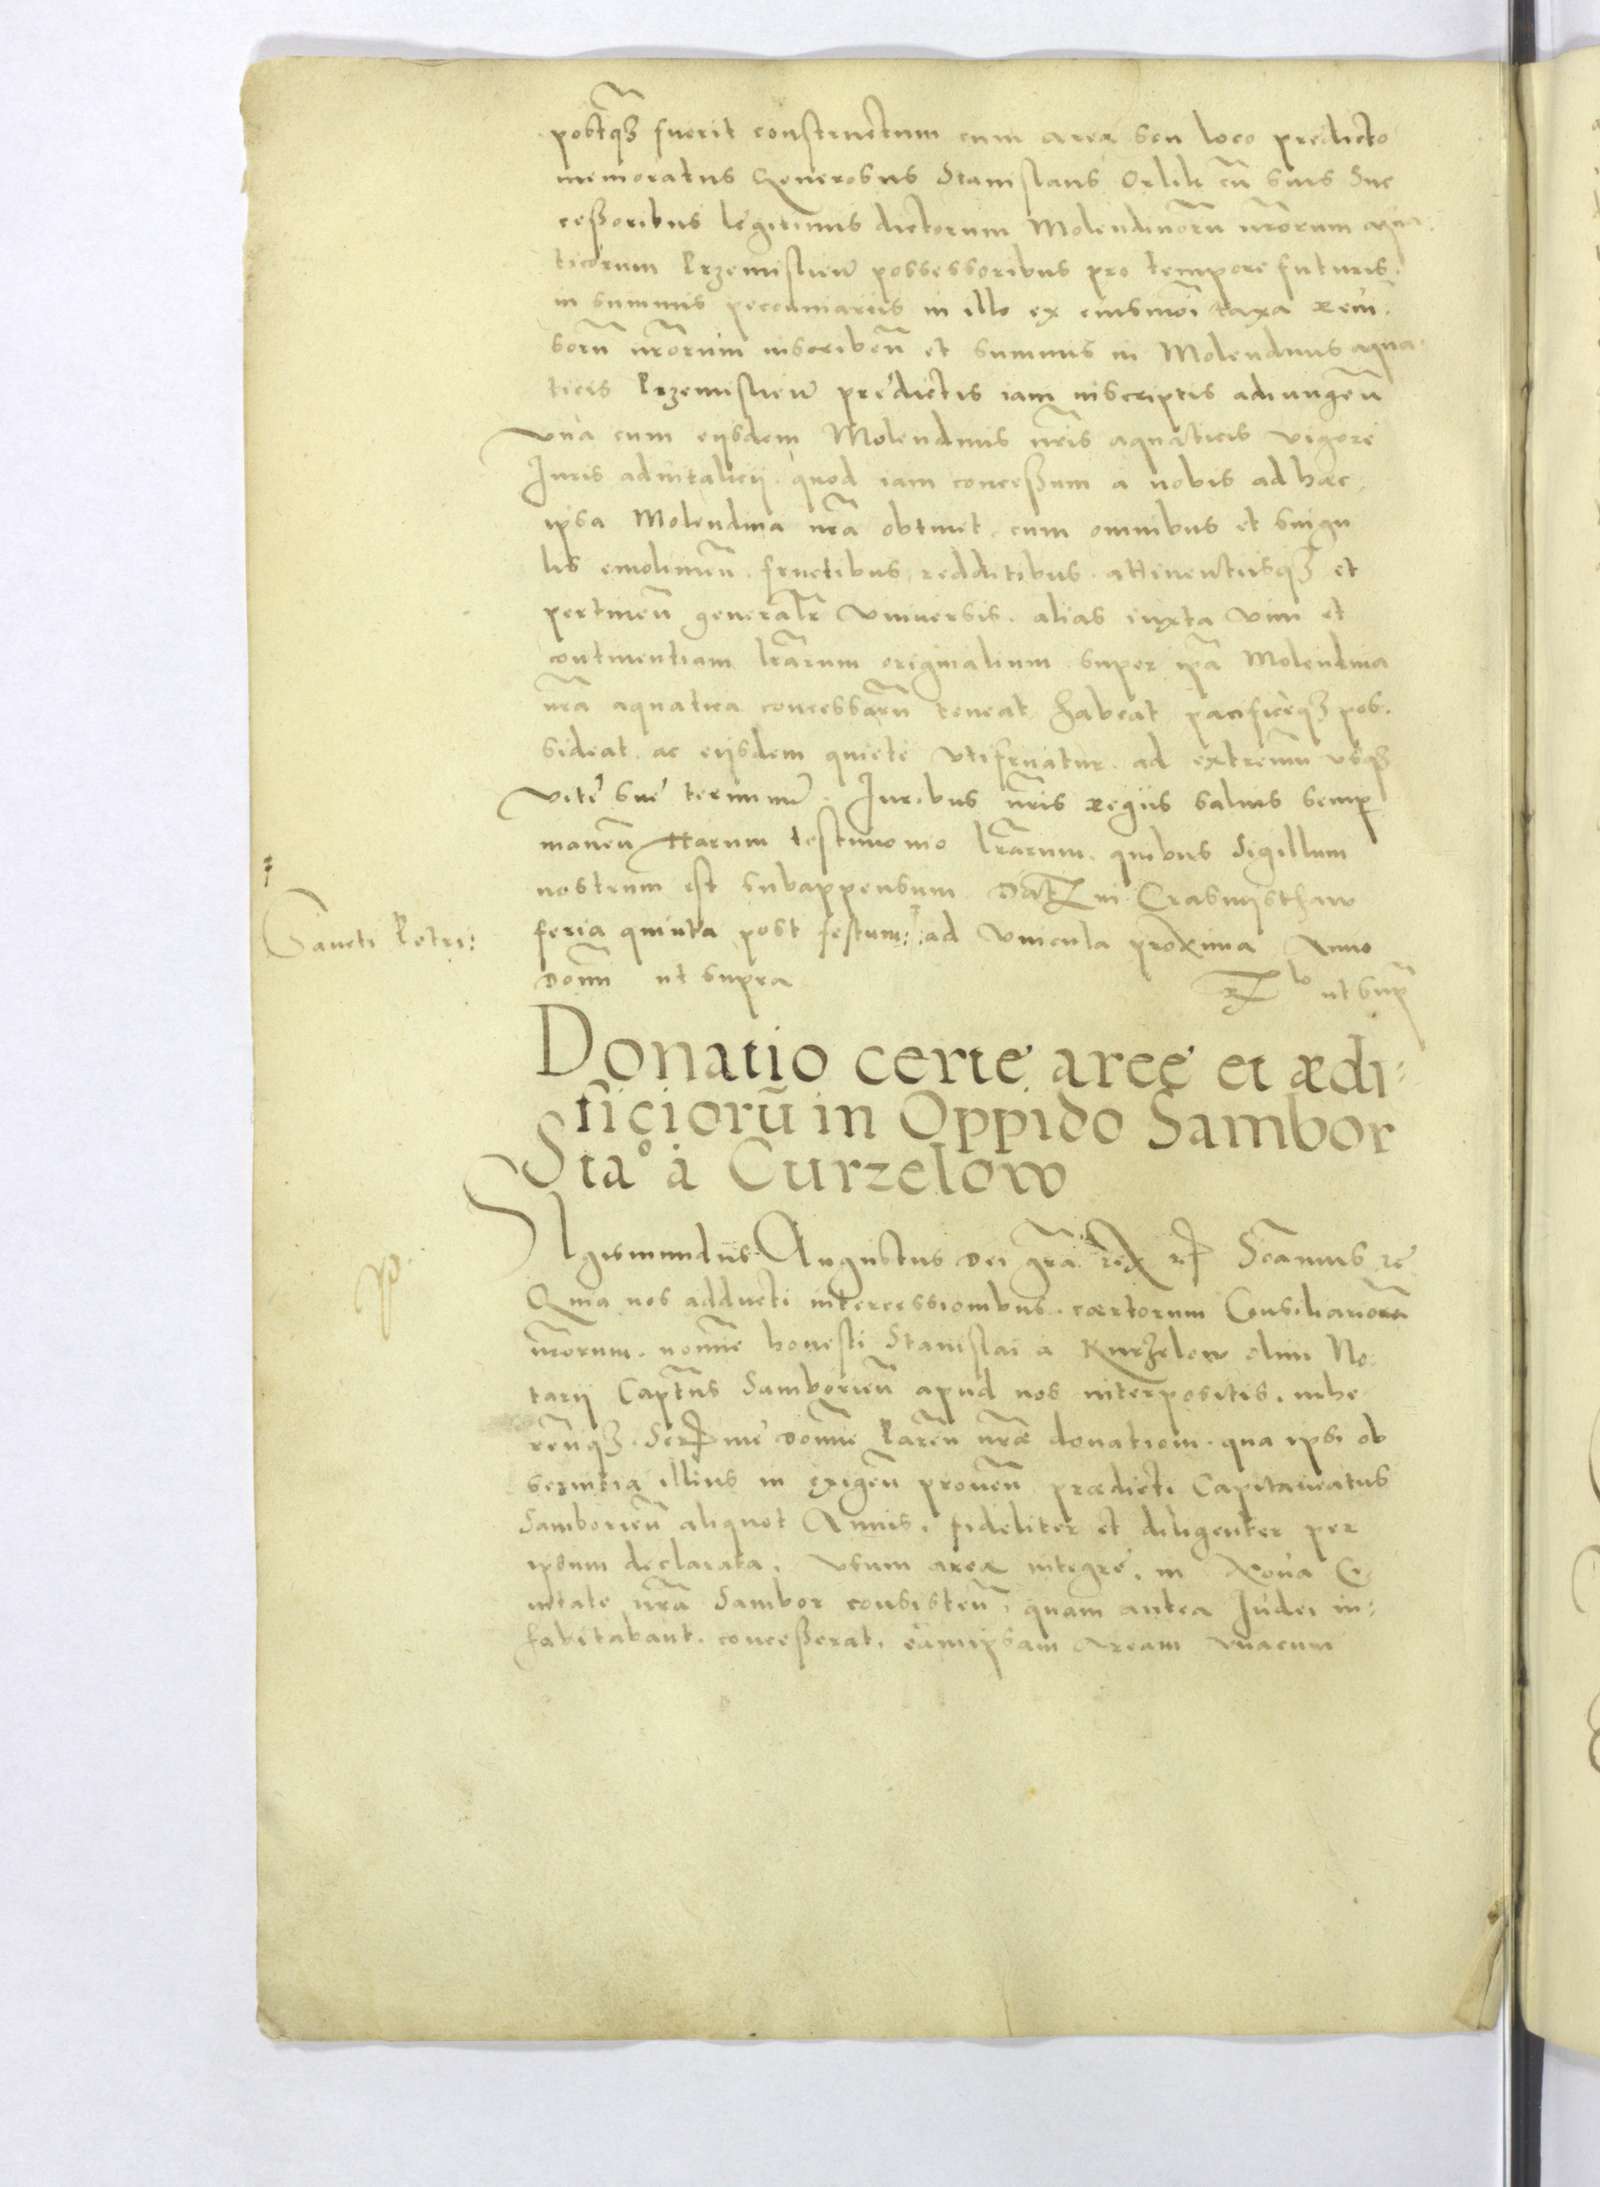 postq̃ꝫ fuerit constructum cum area seu loco predicto
memoratus Generosus Stanislaus Orlik cũ suis Suc
cessoribus legitimis dictorum Molendinorũ nr̃orum aqua
ticorum Przemislien̄ possessoribus pro tempore futuris.
in summis pecuniariis in illo ex eiusmõi taxa reui
sorũ nr̃orum inscriben̄ et summis in Molendinis aqua
ticis Przemislien̄ predictis iam inscriptis adiungen̄
vna cum eiisdem Molendinis nr̃is aquaticis vigore
Iuris aduitalicii. quod iam concessum a nobis ad hæc
ipsa Molendina nr̃a obtinet. cum omnibus et singu
lis emolimen̄. fructibus, redditibus. attinentiisq̃ꝫ et
pertinen̄ generalr̃ vniuersis. alias iuxta vim et
continentiam lr̃arum originalium super ip̃a Molendina
nr̃a aquatica concessarũ teneat habeat pacificeqꝫ pos.
sideat. ac eiisdem quiete vtifruatur. ad extremũ vsqꝫ
vite sue terminũ. Iuribus nr̃is regiis saluis semp
manen̄ Harum testimonio lr̃arum. quibus Sigillum
nostrum est subappensum Dat̃ in Crasnijsthaw
Sancti Petri:
feria quinta post festum: ad vincula proxima Anno
Domĩ ut supra
Rlo ut sup̃
Donatio certe aree et ædi:
ficiorũ in Oppido Sambor
Sta° à Curzelow
Sigismundus Augustus Dei gr̃a rex etc Scamus etc
Quia nos adducti intercessionibus. certorum Consiliariorũ
nr̃orum. nomie honesti Stanislai a Kurzelow olim No.
tarii Captñs Samborien̄ apud nos interpositis. inhe
ren̄qꝫ. Serme Domie Paren̄ nr̃æ donationi. qua ipsi ob
seruitia illius in exigen̄ prouen̄ prædicti Capitaneatus
Samborien̄ aliquot Annis. fideliter et diligenter per
ipsum declarata. vsum areæ integre. in Noua Ci
uitate nr̃a Sambor consisten̄, quam antea Iudei in:
habitabant. concesserat. eamipsam Aream vnacum